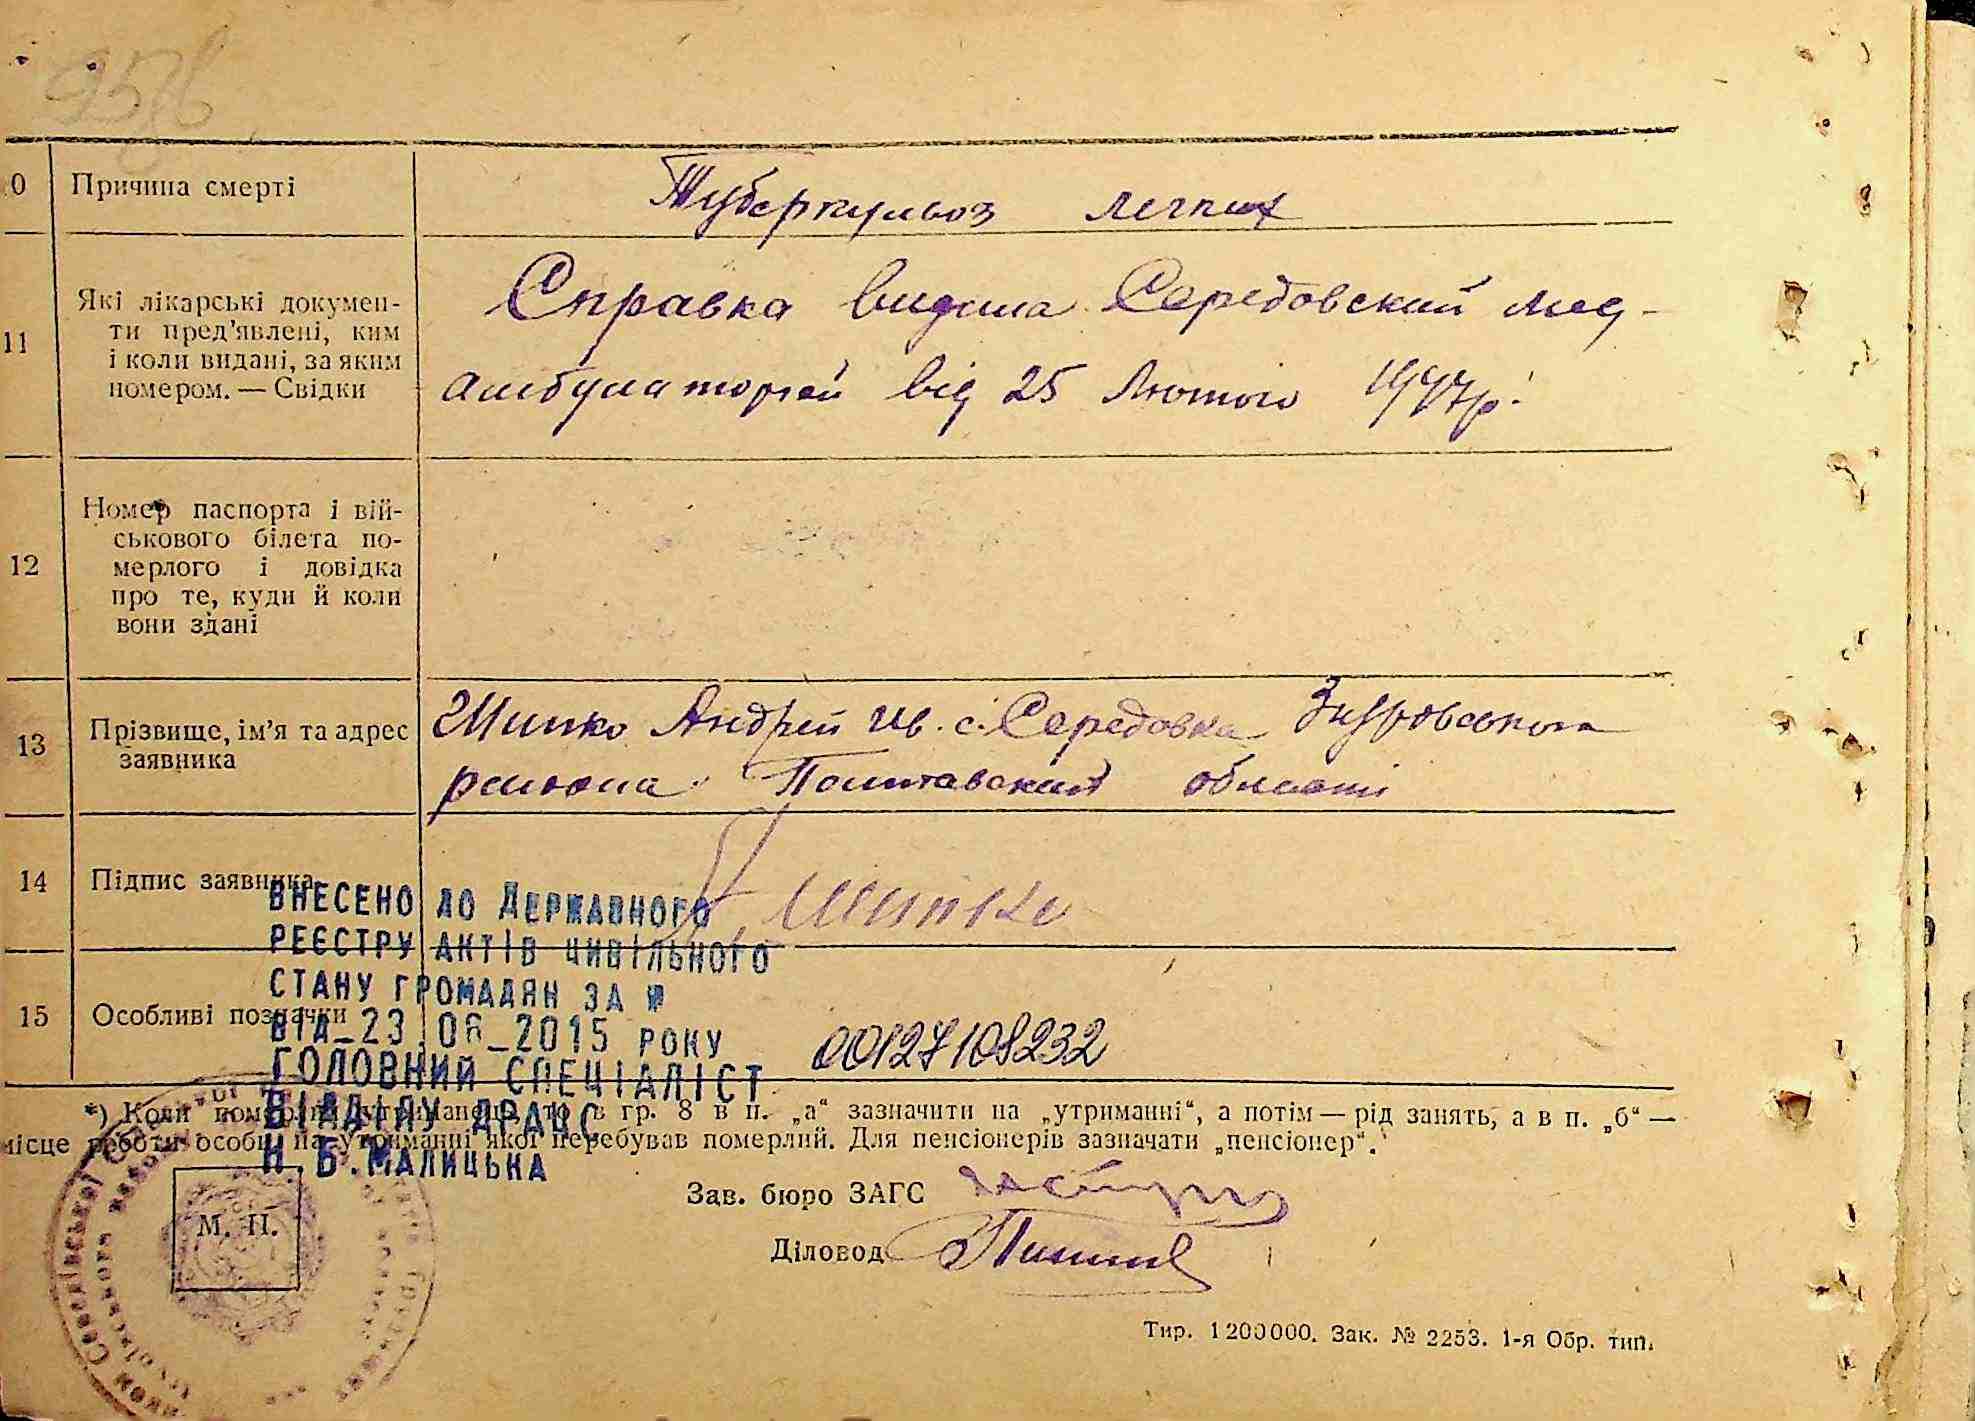 0 Причина смерті Туберкульоз легких
11 Які лікарські докумен-
ти пред'явлені, ким
і коли видані, за яким
номером. — Свідки
Справка видана Середовский мед-
амбулаторией від 25 Лютого 1947р.
12 Номер паспорта і вій-
ськового білета по-
мерлого і довідка
про те, куди й коли
вони здані
13 Прізвище, ім'я та адрес
заявника
Шипко Андрей Ив. с. Середовка
района Полтавский області
14 Підпис заявника
Шипко
15 Особливі позначки
ВНЕСЕНО ДО ДЕРЖАВНОГО
РЕЄСТРУ АКТІВ ЦИВІЛЬНОГО
СТАНУ ГРОМАДЯН ЗА №
ВІД_23.06_2015 РОКУ
00127108232
ГОЛОВНИЙ СПЕЦІАЛІСТ
ВІДДІЛУ ДРАЦС
Н.Б.МАЛИЦЬКА
*) Коли в гр. 8 в п. „а“ зазначити на „утриманні“, а потім — рід занять, а в п. „б“ —
місце роботи особи, на утриманні якої перебував померлий. Для пенсіонерів зазначати „пенсіонер“.
М. П.
Зав. бюро ЗАГС
Діловод
Тир. 1200000. Зак. № 2253. 1-я Обр. тип.